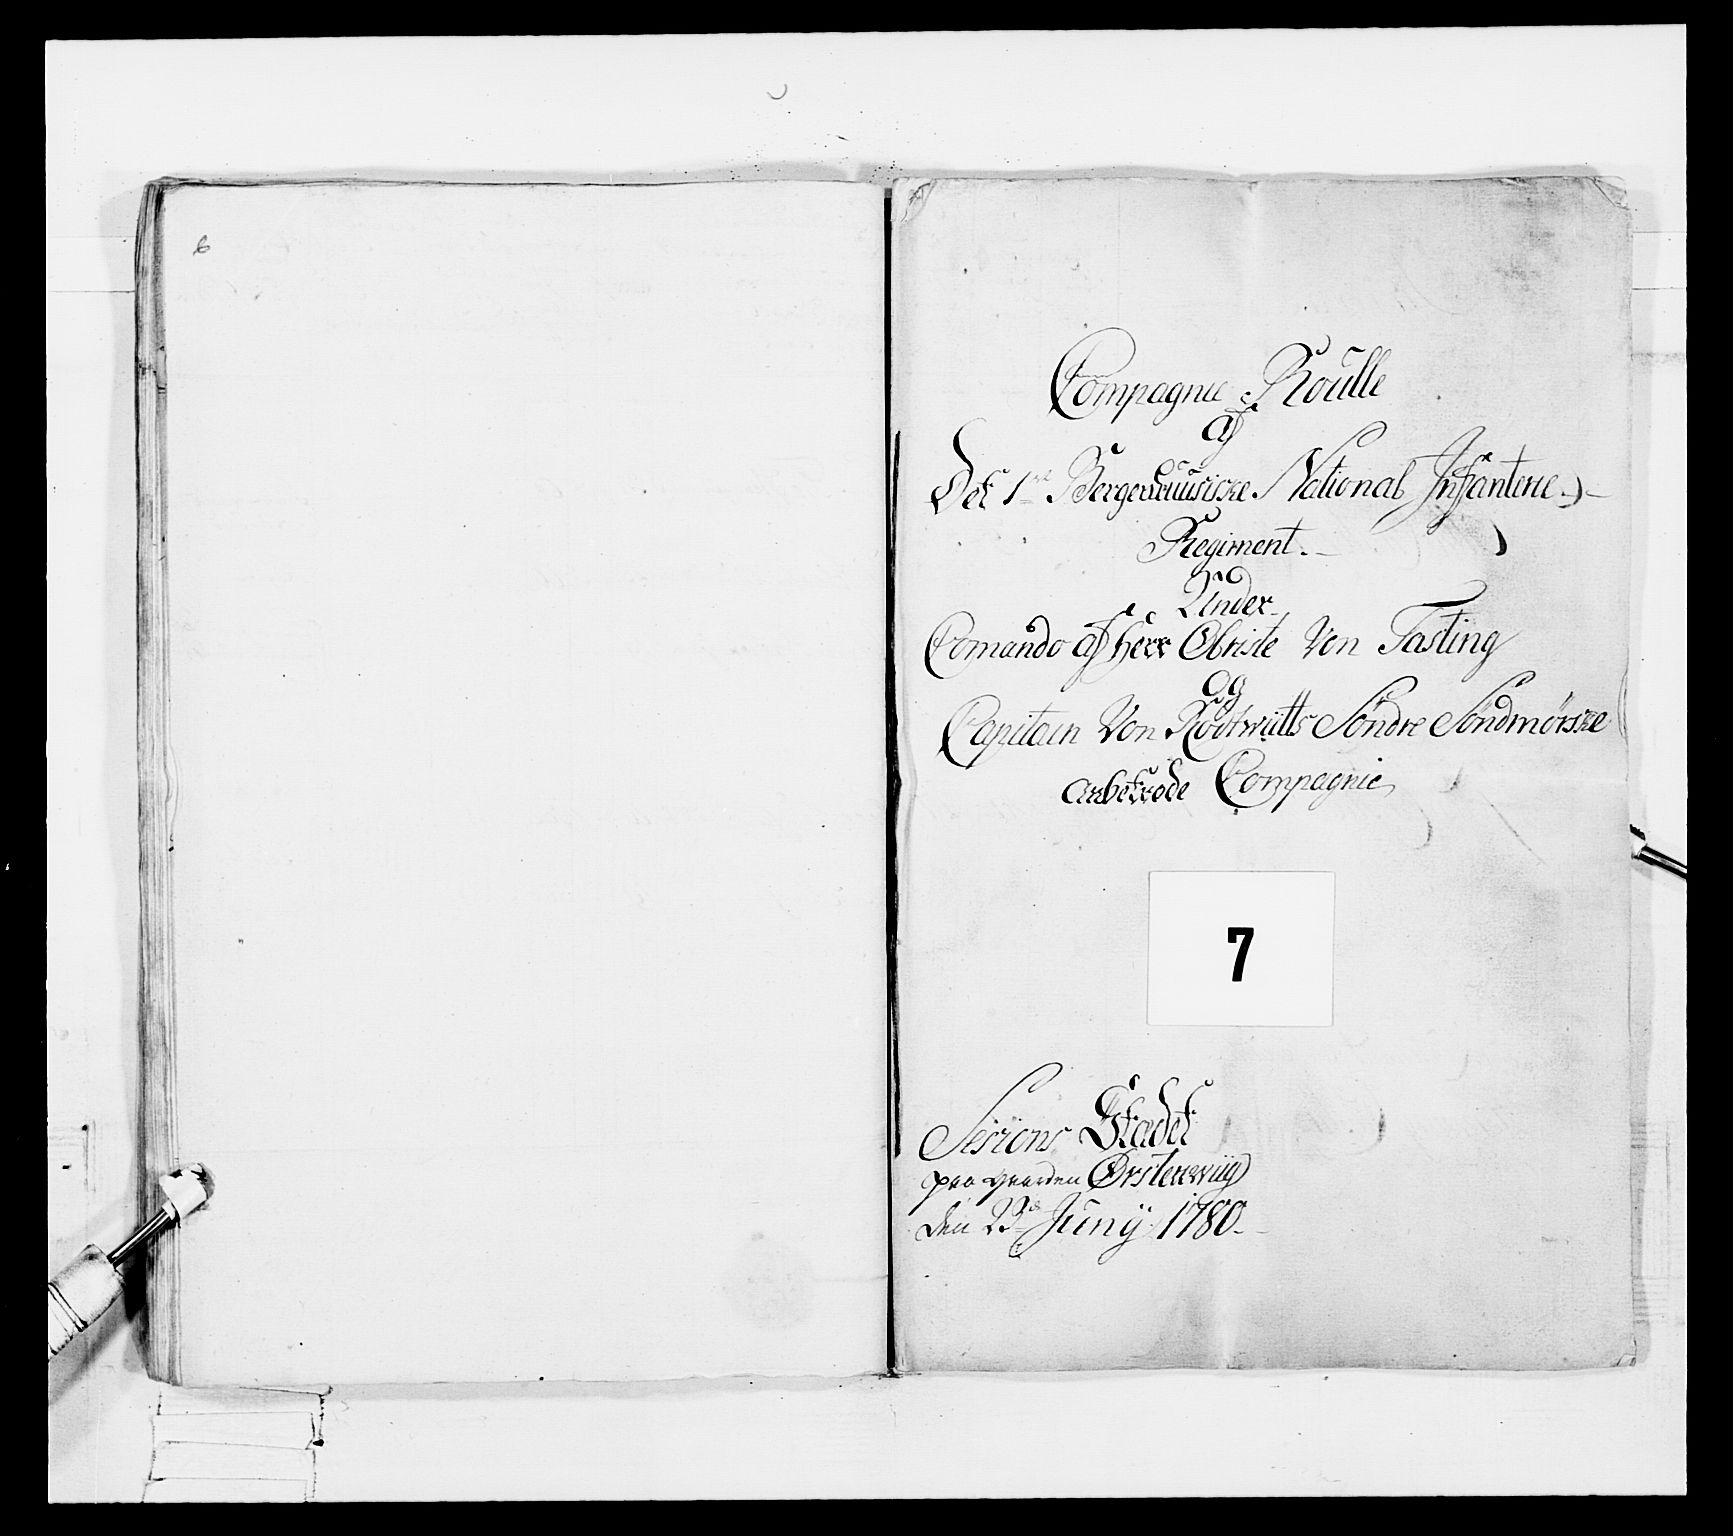 6
Compagnie Roulle
af
Det 1te Bergenhuusiske National Infanterie
Regiment.
Under
Comando af Herr Obriste Von Fasting
og
Capitain Von Söndre Söndmörske
anbetrode Compagnie
7
Sesions Stædet
paa gaarden Ørstenwiig
den 23de Junÿ 1780.